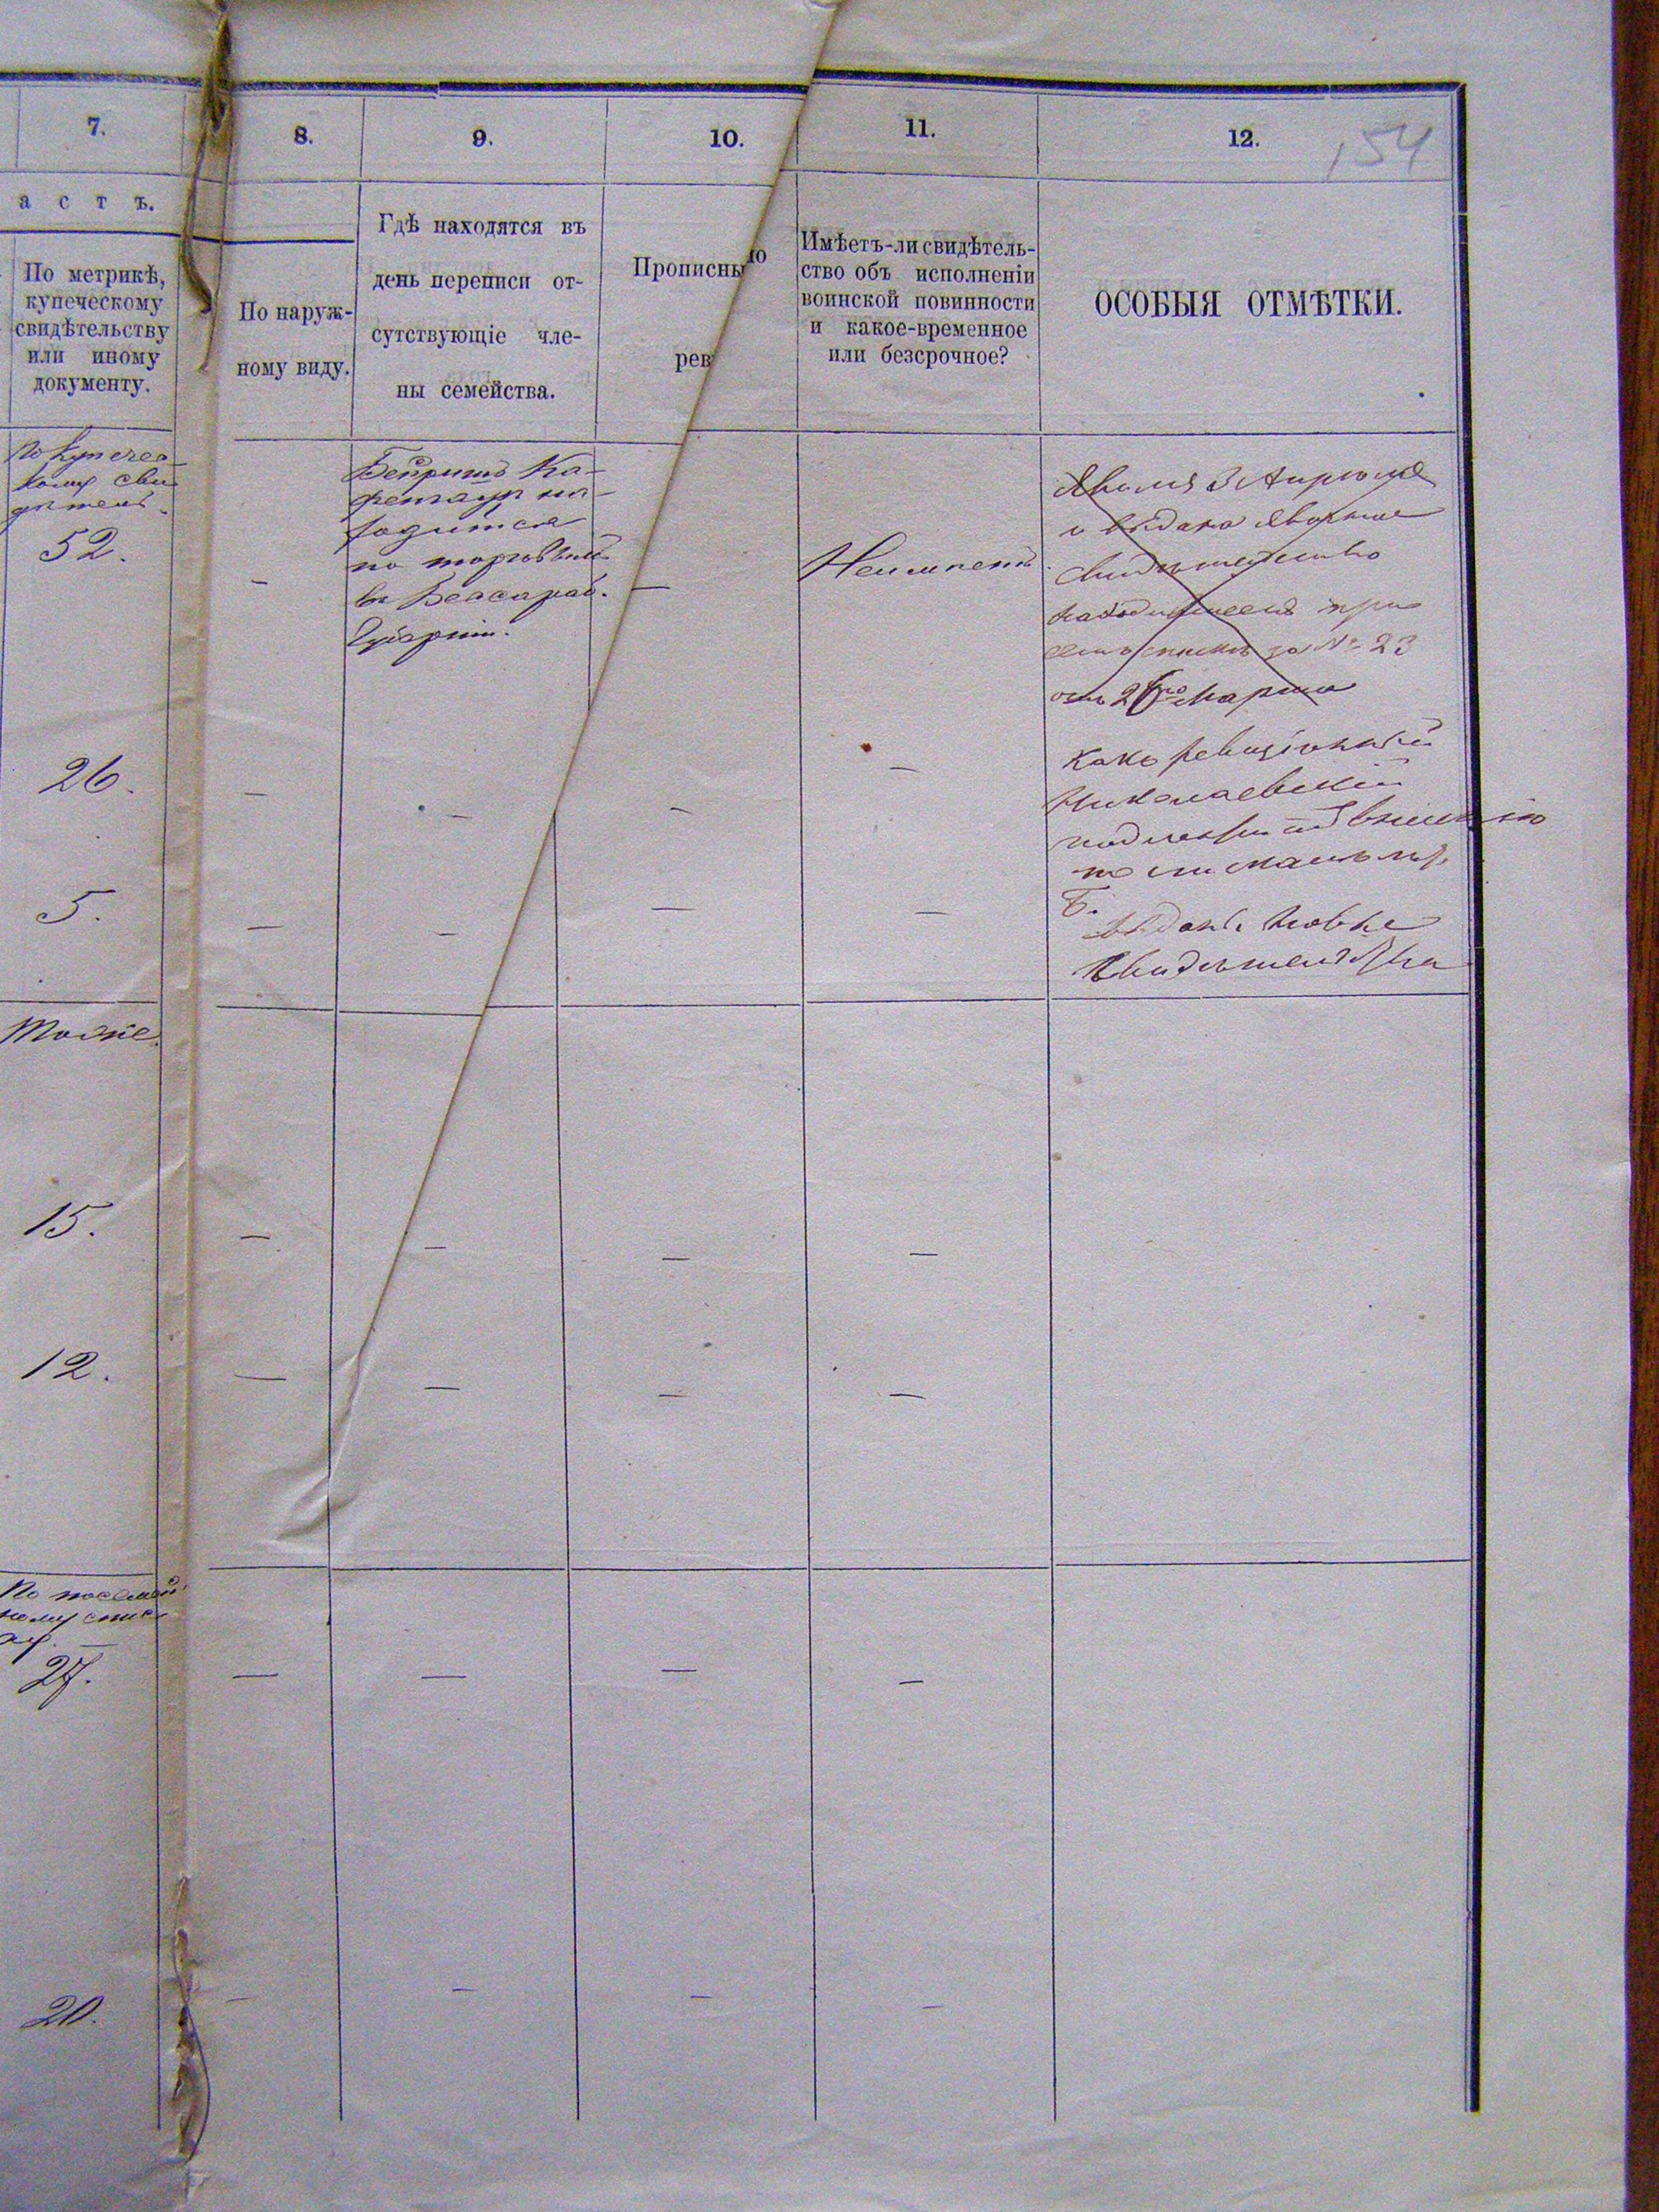 7.
8.
9.
10.
11.
12.
154
а с т ъ.
По метрикѣ,
купеческому
свидѣтельству
или иному
документу.
По наруж-
ному виду.
Гдѣ находятся въ
день переписи от-
сутствующіе чле-
ны семейства.
Прописны
рев
ю
Имѣетъ-ли свидѣтель-
ство объ исполненіи
воинской повинности
и какое-временное
или безсрочное?
ОСОБЫЯ ОТМѢТКИ.
По купечес-
кому сви
дѣтель.
52.
—
на-
ходится
по торговлѣ
въ Бессараб.
Губерніи.
—
Неимѣетъ
3 Апрѣля
и выдано
свидѣтельство
при
за № 23
отъ 26го Марта
26.
—
—
—
—
Какъ ревизіонный
Николаевскій
подлежитъ
5.
—
—
—
—
Б.
выданы новые
свидѣтельства
Тоже.
15.
—
—
—
—
12.
—
—
—
—
По посемей
ному спис
ку.
27.
—
—
—
—
20.
—
—
—
—